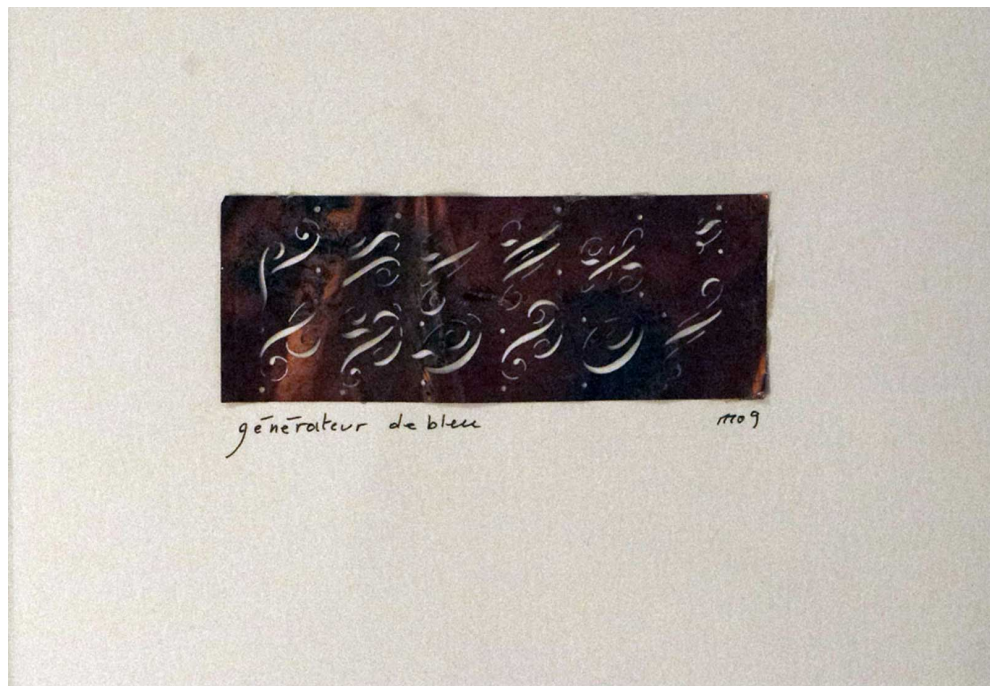 générateur de bleu
mog